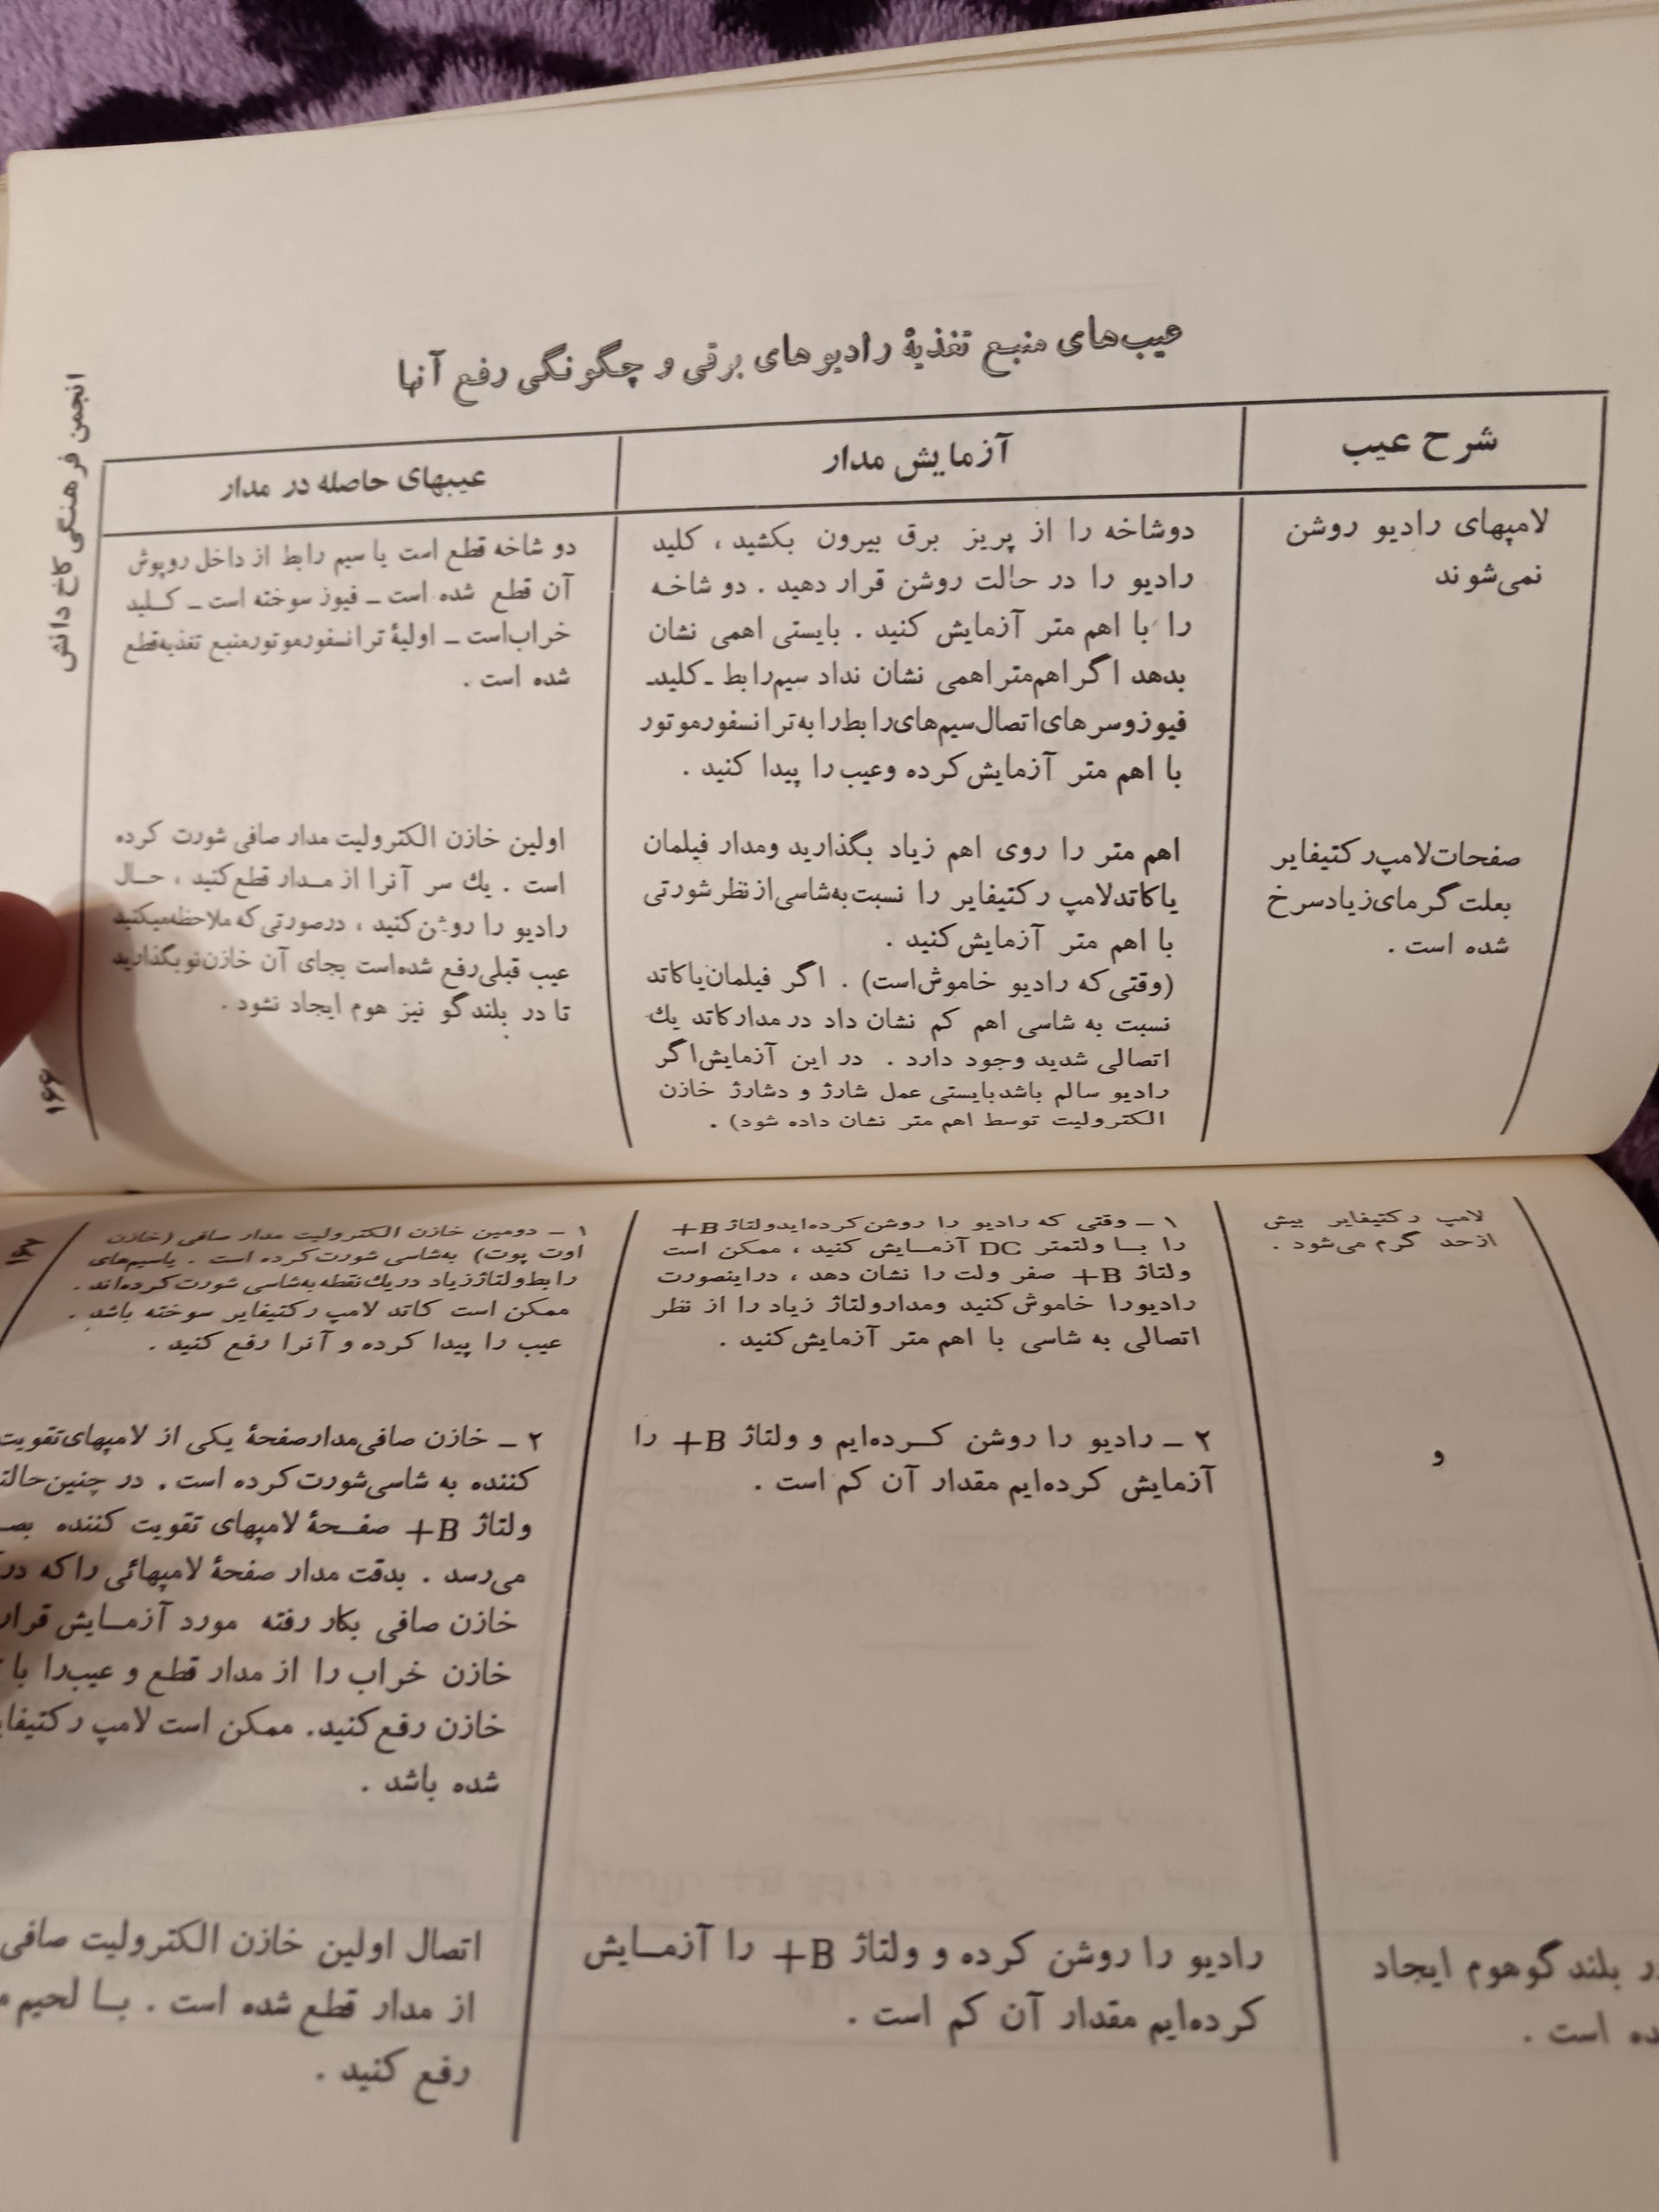 عیب‌های منبع تغذیهٔ رادیوهای برقی و چگونگی رفع آنها
شرح عیب
آزمایش مدار
عیبهای حاصله در مدار
لامپهای رادیو روشن
نمی‌شوند
دوشاخه را از پریز برق بیرون بکشید ، کلید
رادیو را در حالت روشن قرار دهید . دو شاخه
را با اهم متر آزمایش کنید . بایستی اهمی نشان
بدهد اگر اهم‌متر اهمی نشان نداد سیم‌رابط ـ کلید ـ
فیوز و سرهای اتصال سیم‌های رابط را به ترانسفورموتور
با اهم متر آزمایش کرده و عیب را پیدا کنید .
دو شاخه قطع است یا سیم رابط از داخل روپوش
آن قطع شده است ـ فیوز سوخته است ـ کلید
خراب است ـ اولیهٔ ترانسفورموتور منبع تغذیه قطع
شده است .
صفحات لامپ رکتیفایر
بعلت گرمای زیاد سرخ
شده است .
اهم متر را روی اهم زیاد بگذارید ومدار فیلمان
یا کاتد لامپ رکتیفایر را نسبت به شاسی از نظر شورتی
با اهم متر آزمایش کنید .
(وقتی که رادیو خاموش است) . اگر فیلمان یا کاتد
نسبت به شاسی اهم کم نشان داد در مدار کاتد یك
اتصالی شدید وجود دارد . در این آزمایش اگر
رادیو سالم باشد بایستی عمل شارژ و دشارژ خازن
الکترولیت توسط اهم متر نشان داده شود) .
اولین خازن الکترولیت مدار صافی شورت کرده
است . یك سر آنرا از مدار قطع کنید ، حال
رادیو را روشن کنید ، درصورتی که ملاحظه میکنید
عیب قبلی رفع شده است بجای آن خازن نو بگذارید
تا در بلندگو نیز هوم ایجاد نشود .
انجمن فرهنگی کاخ دانش
۱۶۶
لامپ رکتیفایر بیش
ازحد گرم می‌شود .
۱ ـ وقتی که رادیو را روشن کرده‌اید ولتاژ B+
را با ولتمتر DC آزمایش کنید ، ممکن است
ولتاژ B+ صفر ولت را نشان دهد ، دراینصورت
رادیورا خاموش کنید ومدار ولتاژ زیاد را از نظر
اتصالی به شاسی با اهم متر آزمایش کنید .
۱ ـ دومین خازن الکترولیت مدار صافی (خازن
اوت پوت) به شاسی شورت کرده است . یاسیم‌های
رابط ولتاژ زیاد در یك نقطه به شاسی شورت کرده‌اند .
ممکن است کاتد لامپ رکتیفایر سوخته باشد .
عیب را پیدا کرده و آنرا رفع کنید .
و
۲ ـ رادیو را روشن کرده‌ایم و ولتاژ B+ را
آزمایش کرده‌ایم مقدار آن کم است .
۲ ـ خازن صافی مدار صفحهٔ یکی از لامپهای تقویت
کننده به شاسی شورت کرده است . در چنین
ولتاژ B+ صفحهٔ لامپهای تقویت کننده
می‌رسد . بدقت مدار صفحهٔ لامپهائی را که
خازن صافی بکار رفته مورد آزمایش
خازن خراب را از مدار قطع و عیب را
خازن رفع کنید. ممکن است لامپ
شده باشد .
بلندگو هوم ایجاد
است .
رادیو را روشن کرده و ولتاژ B+ را آزمایش
کرده‌ایم مقدار آن کم است .
اتصال اولین خازن الکترولیت صافی
از مدار قطع شده است . با لحیم
رفع کنید .